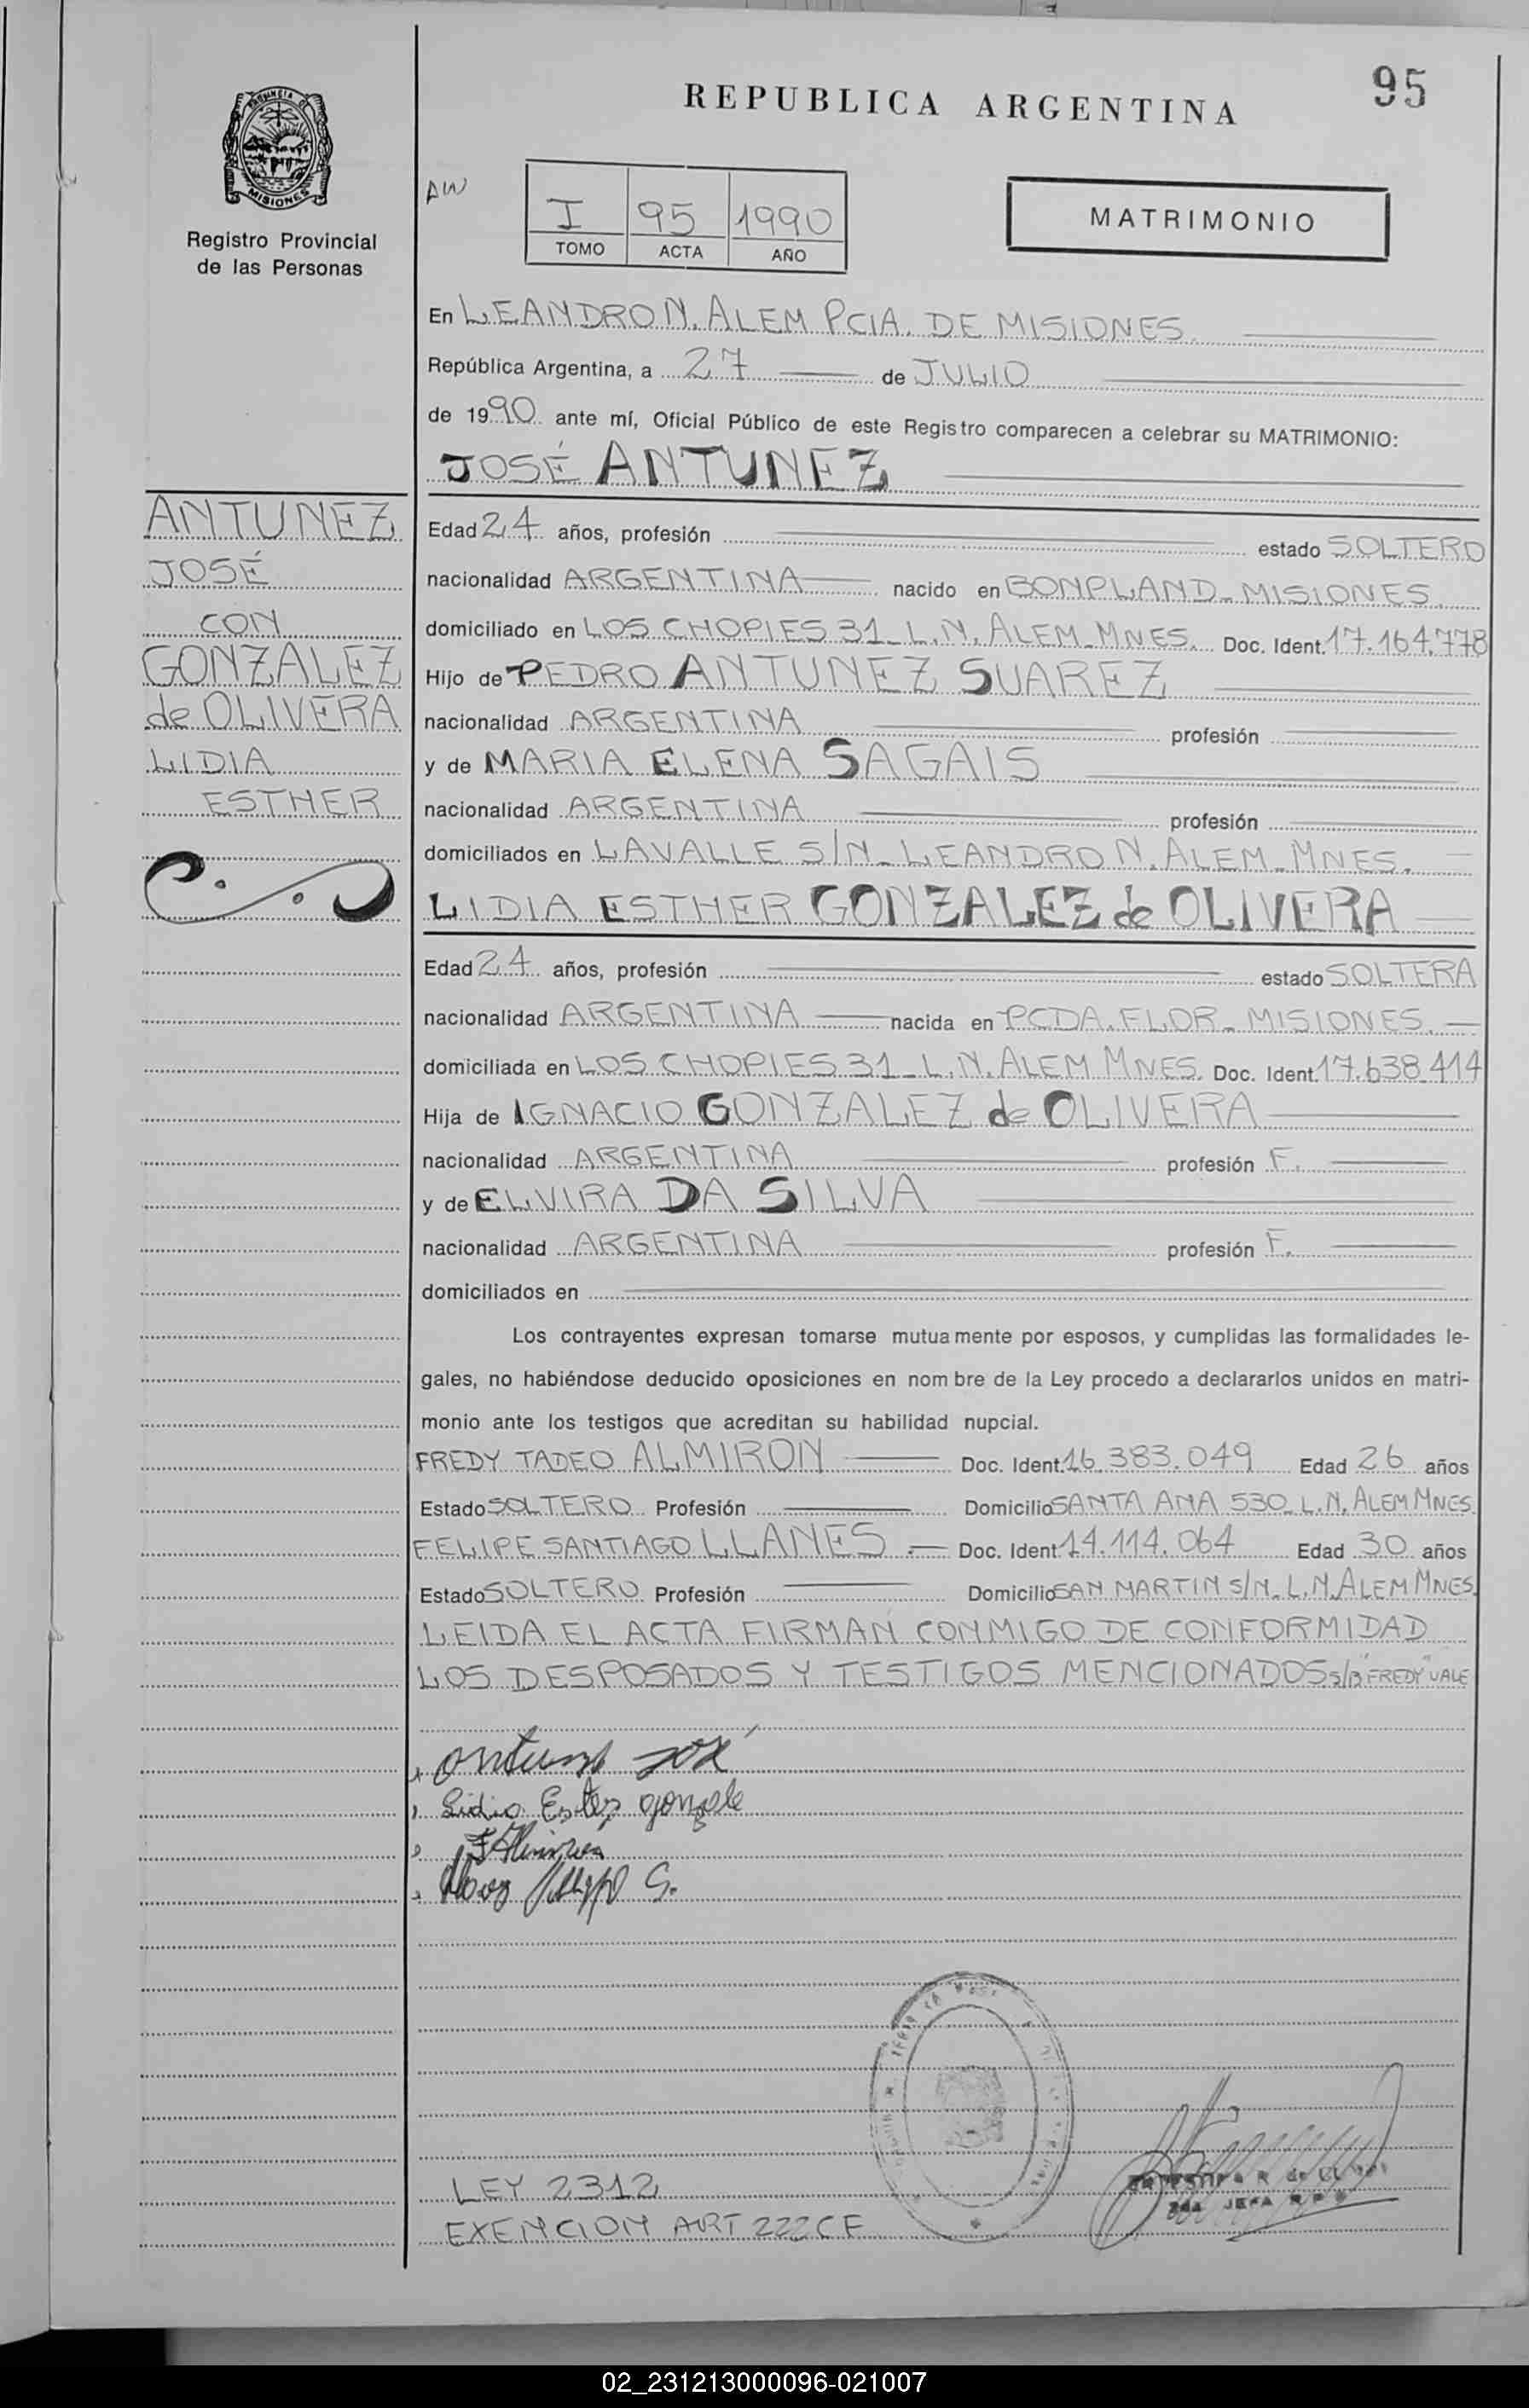 95
REPUBLICA ARGENTINA
PROVINCIA DE
MISIONES
Registro Provincial
de las Personas
AW
I 95 1990
TOMO ACTA AÑO
MATRIMONIO
En LEANDRO N. ALEM PCIA. DE MISIONES.
República Argentina, a 27 de JULIO
de 1990 ante mí, Oficial Público de este Registro comparecen a celebrar su MATRIMONIO:
JOSÉ ANTUNEZ
ANTUNEZ
JOSÉ
CON
GONZALEZ
de OLIVERA
LIDIA
ESTHER
Edad 24 años, profesión estado SOLTERO
nacionalidad ARGENTINA nacido en BONPLAND - MISIONES.
domiciliado en LOS CHOPIES 31 - L.N. ALEM - MNES. Doc. Ident. 17.164.778
Hijo de PEDRO ANTUNEZ SUAREZ
nacionalidad ARGENTINA profesión
y de MARIA ELENA SAGAIS
nacionalidad ARGENTINA profesión
domiciliados en LAVALLE S/N - LEANDRO N. ALEM - MNES.
LIDIA ESTHER GONZALEZ de OLIVERA
Edad 24 años, profesión estado SOLTERA
nacionalidad ARGENTINA nacida en PCDA. FLOR - MISIONES.
domiciliada en LOS CHOPIES 31 - L.N. ALEM MNES. Doc. Ident. 17.638.414
Hija de IGNACIO GONZALEZ de OLIVERA
nacionalidad ARGENTINA profesión F.
y de ELVIRA DA SILVA
nacionalidad ARGENTINA profesión F.
domiciliados en
Los contrayentes expresan tomarse mutuamente por esposos, y cumplidas las formalidades le-
gales, no habiéndose deducido oposiciones en nombre de la Ley procedo a declararlos unidos en matri-
monio ante los testigos que acreditan su habilidad nupcial.
FREDY TADEO ALMIRON Doc. Ident. 16.383.049 Edad 26 años
Estado SOLTERO Profesión Domicilio SANTA ANA 530 - L.N. ALEM MNES.
FELIPE SANTIAGO LLANES Doc. Ident 14.114.064 Edad 30 años
Estado SOLTERO Profesión Domicilio SAN MARTIN S/N - L.N. ALEM MNES.
LEIDA EL ACTA FIRMAN CONMIGO DE CONFORMIDAD
LOS DESPOSADOS Y TESTIGOS MENCIONADOS S/B "FREDY" VALE
Lidia Ester
LEY 2312
EXENCION ART 222 C F
02_231213000096-021007